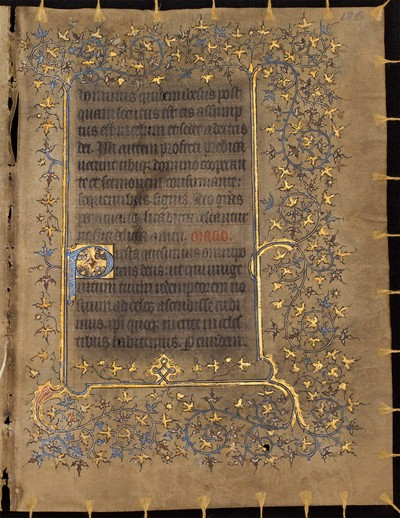 dominus quidem ihesus post
quam locutus est eis assump
tus est in celum et sedet a dextris
dei. Illi autem profecti predica
uerunt ubique domino cooperan
te et sermonem confirmante
sequentibus signis. deo gras
oratio.
esta quesumus omnipo
tens deus ut qui unige
nitum tuum redemptorem nos
trum ad celos ascendisse credi
mus. ipi quoqz mente in celes
tibus habitemus. Per eundem.